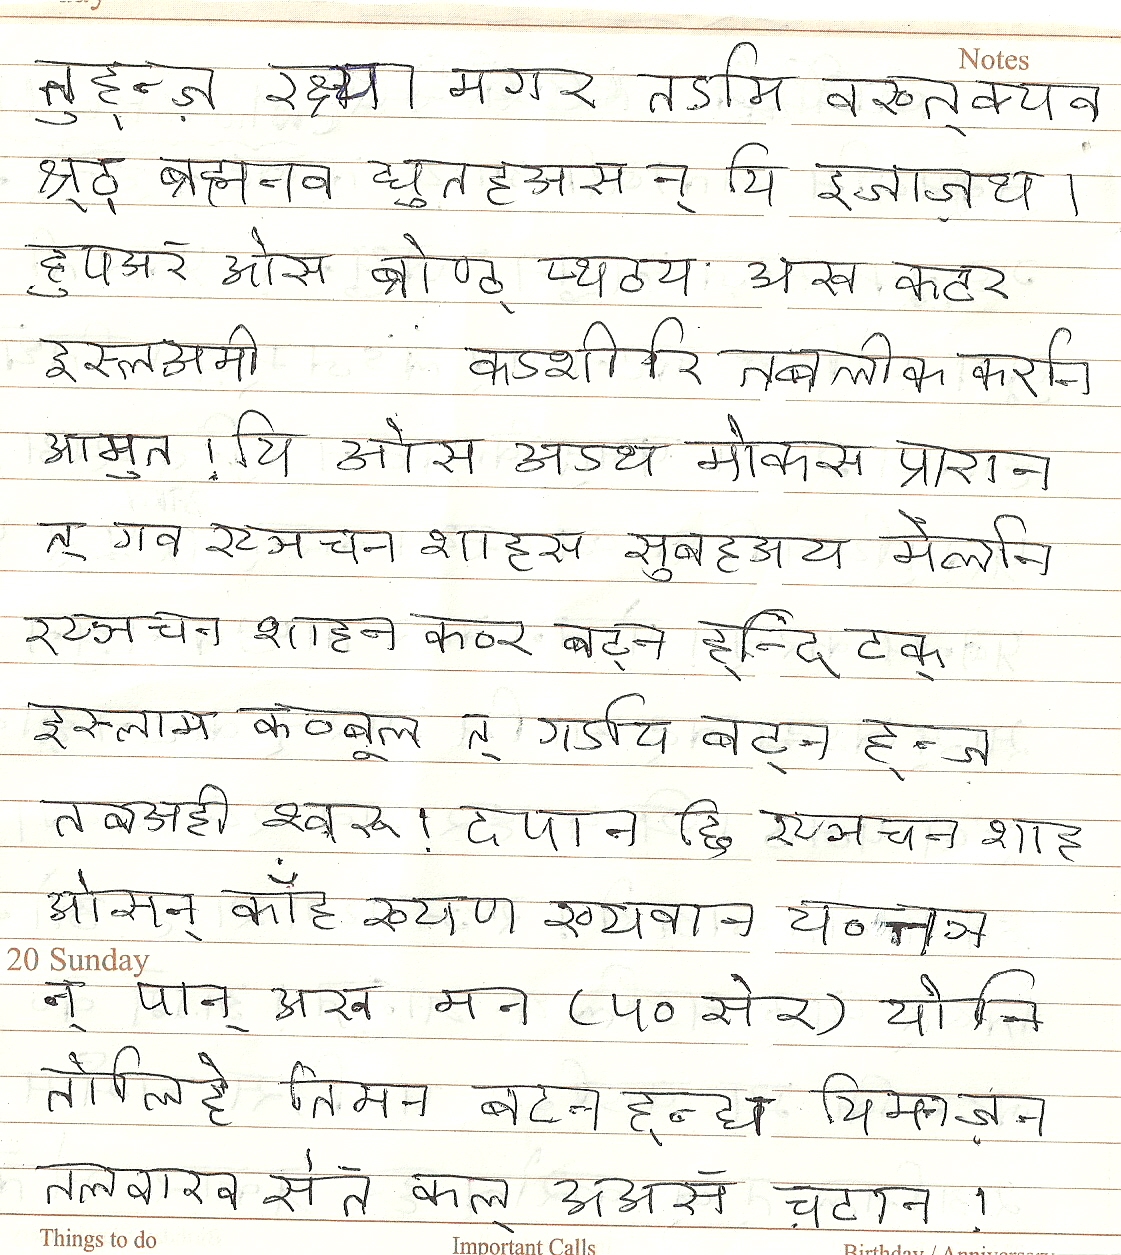 Notes
तुह्न्ज़ रक्ष्या मगर तऽमि वख़्त्क्यव
श्र्ठ् ब्रह्मनव द्युतहअस न् यि इजाज़थ ।
हुपअरॅ ओस ब्रोण्ठ् प्यठय अख कटर
इस्लअमी कऽशीरि तब्बलीक करनि
आमुत । यि ओस अऽथ मोकस प्रारान
त् गव रयञचन शाहस सुबहअय मेलनि
रयञचन शाहन कoर बट्न ह्न्दि टक्
इस्लाम कoबूल त् गऽयि बट्न ह्न्ज़
तबअही श्वरू ! दपान छि रयञचन शाह
ओसन् काँह ख्यण ख्यवान यoतञ
न् पान् अख मन (५० सेर) योनि
तोलिहे तिमन बटन ह्न्द्य यिमनज़न
तलवारव सॅत कल् अअसॅ च़टान !
20 Sunday
Things to do
Important Calls
Birthday / Anniversary